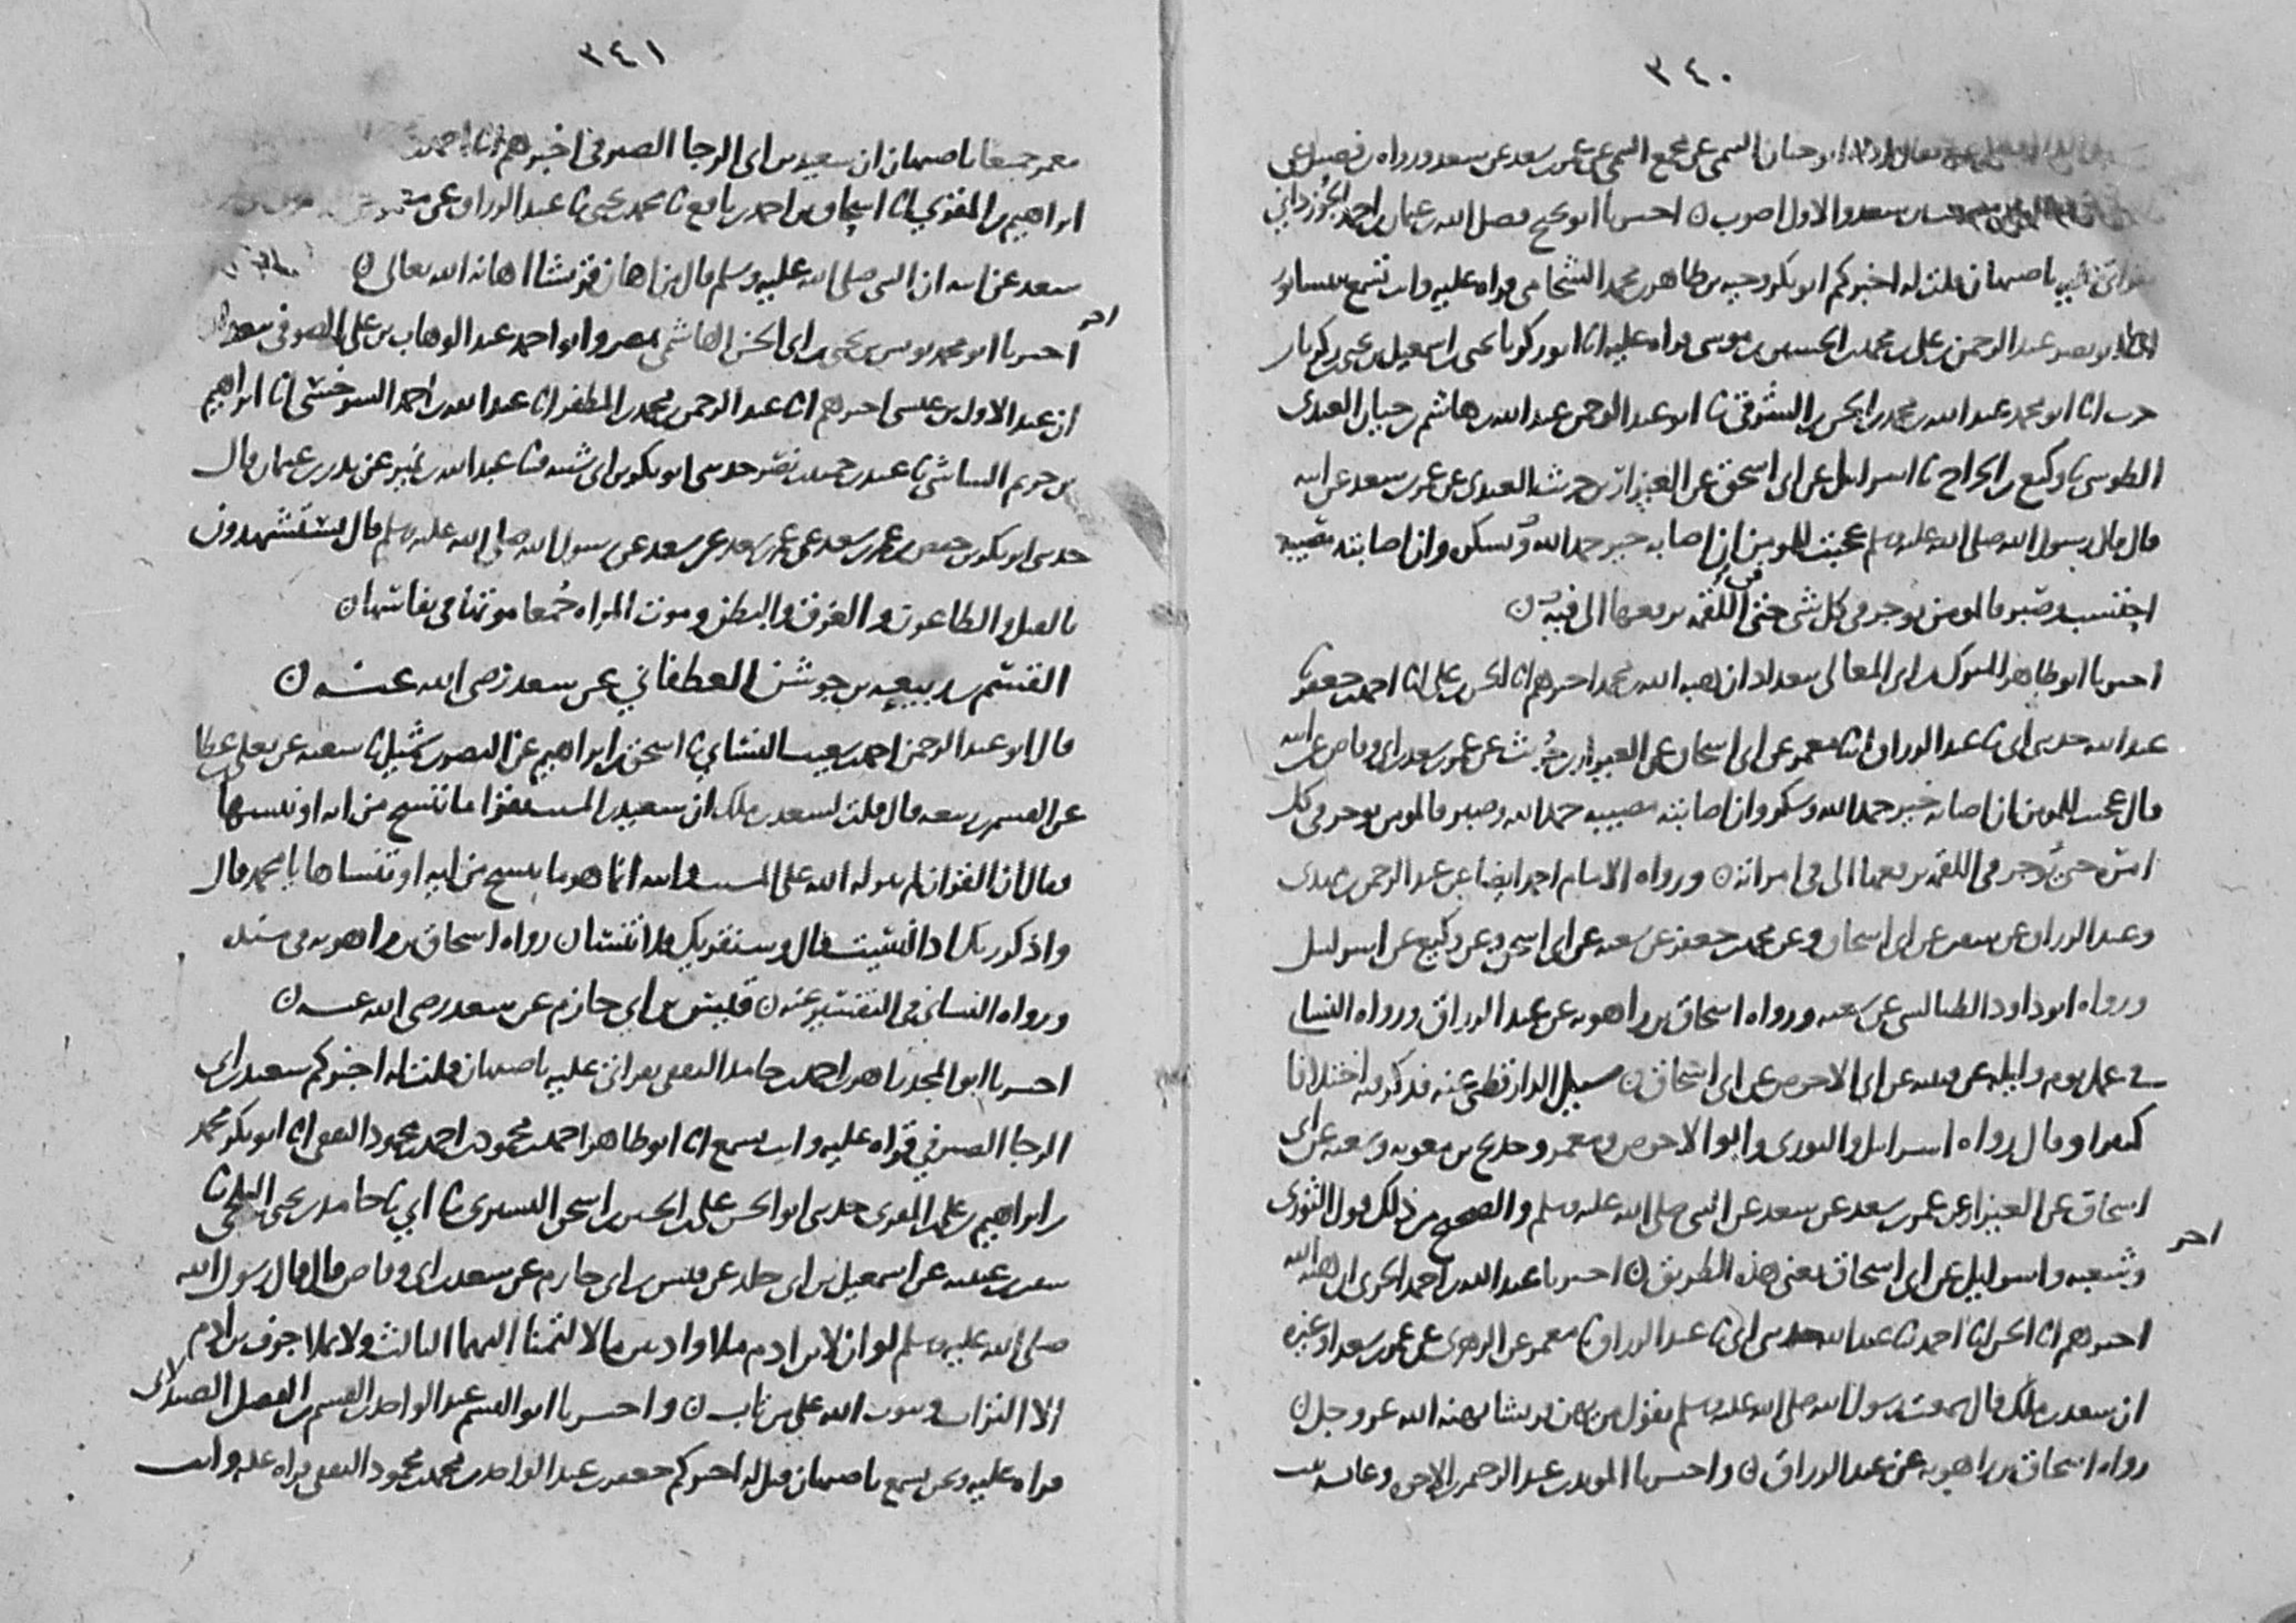 ٣٤٠
ابو حيان التيمي عن مجمع التيمي عن عمر بن سعد عن سعد ورواه بن فضيل عن
بن سعد والاول اصوب ن اخبرنا ابو نجيح فضل الله بن عثمان بن احمد الجوزداني
باصبهان قلت له اخبركم ابو بكر وجيه بن طاهر بن محمد الشحامي قراه عليه وانت تسمع بنيسابور
ابو نصر عبد الرحمن بن علي بن محمد بن الحسين بن موسى قراه عليه انا ابو زكريا يحيى بن اسمعيل بن يحيى بن زكريا بن
حرب انا ابو محمد عبد الله بن محمد بن الحسن بن الشرقي نا ابو عبد الرحمن عبد الله بن هاشم بن حيان العبدي
الطوسي نا وكيع بن الجراح نا اسرائيل عن ابي اسحق عن العيزار بن حريث العبدي عن عمر بن سعد عن ابيه
قال قال رسول الله صلى الله عليه وسلم عجبت للمومن ان اصابه خير حمد الله وشكر وان اصابته مصيبه
احتسب وصبر فالمومن يوجر في كل شي حتى اللقمه يرفعها الى فيه ن
اخبرنا ابو طاهر المبارك بن ابي المعالي ببغداد ان هبه الله بن محمد اخبرهم انا الحسن بن علي انا احمد بن جعفر نا
عبد الله حدثني ابي نا عبد الرزاق انا معمر عن ابي اسحاق عن العيزار بن حريث عن عمر بن سعد بن ابي وقاص عن ابيه
قال عجبت للمومن ان اصابه خير حمد الله وشكر وان اصابته مصيبه حمد الله وصبر فالمومن يوجر في كل
امره حتى يوجر في اللقمه يرفعها الى في امراته ن ورواه الامام احمد ايضا عن عبد الرحمن بن مهدي
وعبد الرزاق عن سفيان عن ابي اسحاق وعن محمد بن جعفر عن شعبه عن ابي اسحق وعن وكيع عن اسرائيل
ورواه ابو داود الطيالسي عن شعبه ورواه اسحاق بن راهويه عن عبد الرزاق ورواه النسائي
في عمل يوم وليله عن قتيبه عن ابي الاحوص عن ابي اسحاق ن سيل الدارقطني عنه فذكر فيه اختلافا
كثيرا وقال رواه اسرائيل والثوري وابو الاحوص ومعمر وحديج بن معويه وشعبه عن ابي
اسحاق عن العيزار عن عمر بن سعد عن سعد عن النبي صلى الله عليه وسلم والصحيح من ذلك قول الثوري
وشعبه واسرائيل عن ابي اسحاق يعني هذه الطريق ن اخبرنا عبد الله بن احمد الحربي ان هبه الله
اخر
اخبرهم انا الحسن انا احمد نا عبد الله حدثني ابي نا عبد الرزاق نا معمر عن الزهري عن عمر بن سعد او غيره
ان سعد بن ملك قال سمعت رسول الله صلى الله عليه وسلم يقول من يهن قريشا يهنه الله عز وجل ن
رواه اسحاق بن راهويه عن عبد الرزاق ن واخبرنا المويد بن عبد الرحمن بن الاخوه وعائشه بنت
٣٤١
معمر جميعا باصبهان ان سعيد بن ابي الرجا الصيرفي اخبرهم انا احمد
ابراهيم بن المقري انا اسحاق بن احمد بن نافع نا محمد بن يحيى نا عبد الرزاق عن معمر
سعد عن ابيه ان النبي صلى الله عليه وسلم قال من اهان قريشا اهانه الله تعالى ن
اخر
اخبرنا ابو محمد يونس بن يحيى بن ابي الحسن الهاشمي بمصر وابو احمد عبد الوهاب بن علي الصوفي ببغداد
ان عبد الاول بن عيسى اخبرهم انا عبد الرحمن بن محمد بن المظفر انا عبد الله بن احمد السرخسي انا ابراهيم
بن خريم الشاشي نا عبد بن حميد بن نصر حدثني ابو بكر بن ابي شيبه نا عبد الله بن نمير عن بدر بن عثمان قال
حدثني ابو بكر بن حفص بن عمر بن سعد عن عمر بن سعد عن سعد عن رسول الله صلى الله عليه وسلم قال تستشهدون
بالقتل والطاعون والغرق والبطن وموت المراه جمعا موتها في نفاسها ن
القسم بن ربيعه بن جوشن الغطفاني عن سعد رضي الله عنه ن
قال ابو عبد الرحمن احمد بن شعيب النسائي نا اسحق بن ابراهيم عن النضر بن شميل نا شعبه عن يعلى بن عطا
عن القسم بن ربيعه قال قلت لسعد بن ملك ان سعيد بن المسيب يقرا ما ننسخ من ايه او ننسها
فقال ان القران لم ينزله الله على المسيب ولا ابنه انما هو ما ننسخ من ايه او تنساها يا محمد قال
واذكر ربك اذا نسيت قال وسنقريك فلا تنسى ن رواه اسحاق بن راهويه في مسنده
ورواه النسائي في التفسير عنه ن قيس بن ابي حازم عن سعد رضي الله عنه ن
اخبرنا ابو المجد زاهر بن احمد بن حامد الثقفي بقراتي عليه باصبهان قلت له اخبركم سعيد بن ابي
الرجا الصيرفي قراه عليه وانت تسمع انا ابو طاهر احمد بن محمود بن احمد بن محمود الثقفي انا ابو بكر محمد
بن ابراهيم بن علي المقري حدثني ابو الحسن علي بن الحسن بن اسحق التستري نا ابي نا حامد بن يحيى البلخي نا
سفين بن عيينه عن اسمعيل بن ابي خلد عن قيس بن ابي حازم عن سعد بن ابي وقاص قال قال رسول الله
صلى الله عليه وسلم لو ان لابن ادم ملا واديين مالا لتمنا اليهما الثالث ولا يملا جوف بن ادم
الا التراب ويتوب الله على من تاب ن واخبرنا ابو القسم عبد الواحد بن القسم بن الفضل الصيدلاني
قراه عليه ونحن نسمع باصبهان قيل له اخبركم جعفر بن عبد الواحد بن محمد بن محمود الثقفي قراه عليه وانت